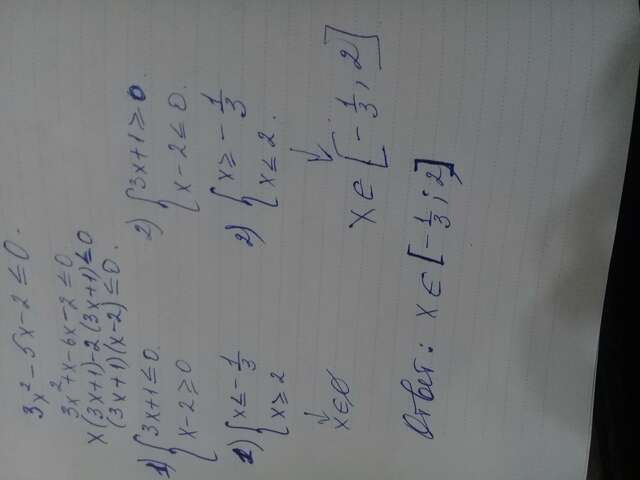 3x² - 5x - 2 ≤ 0.
3x² + x - 6x - 2 ≤ 0
x(3x+1) - 2(3x+1) ≤ 0
(3x+1)(x-2) ≤ 0.
1) { 3x+1 ≤ 0
x - 2 ≥ 0
2) { 3x+1 ≥ 0.
x - 2 ≤ 0.
1) { x ≤ -1/3
x ≥ 2
2) { x ≥ -1/3
x ≤ 2.
↓
x ∈ ∅
↓
x ∈ [-1/3; 2]
Ответ: x ∈ [-1/3; 2]